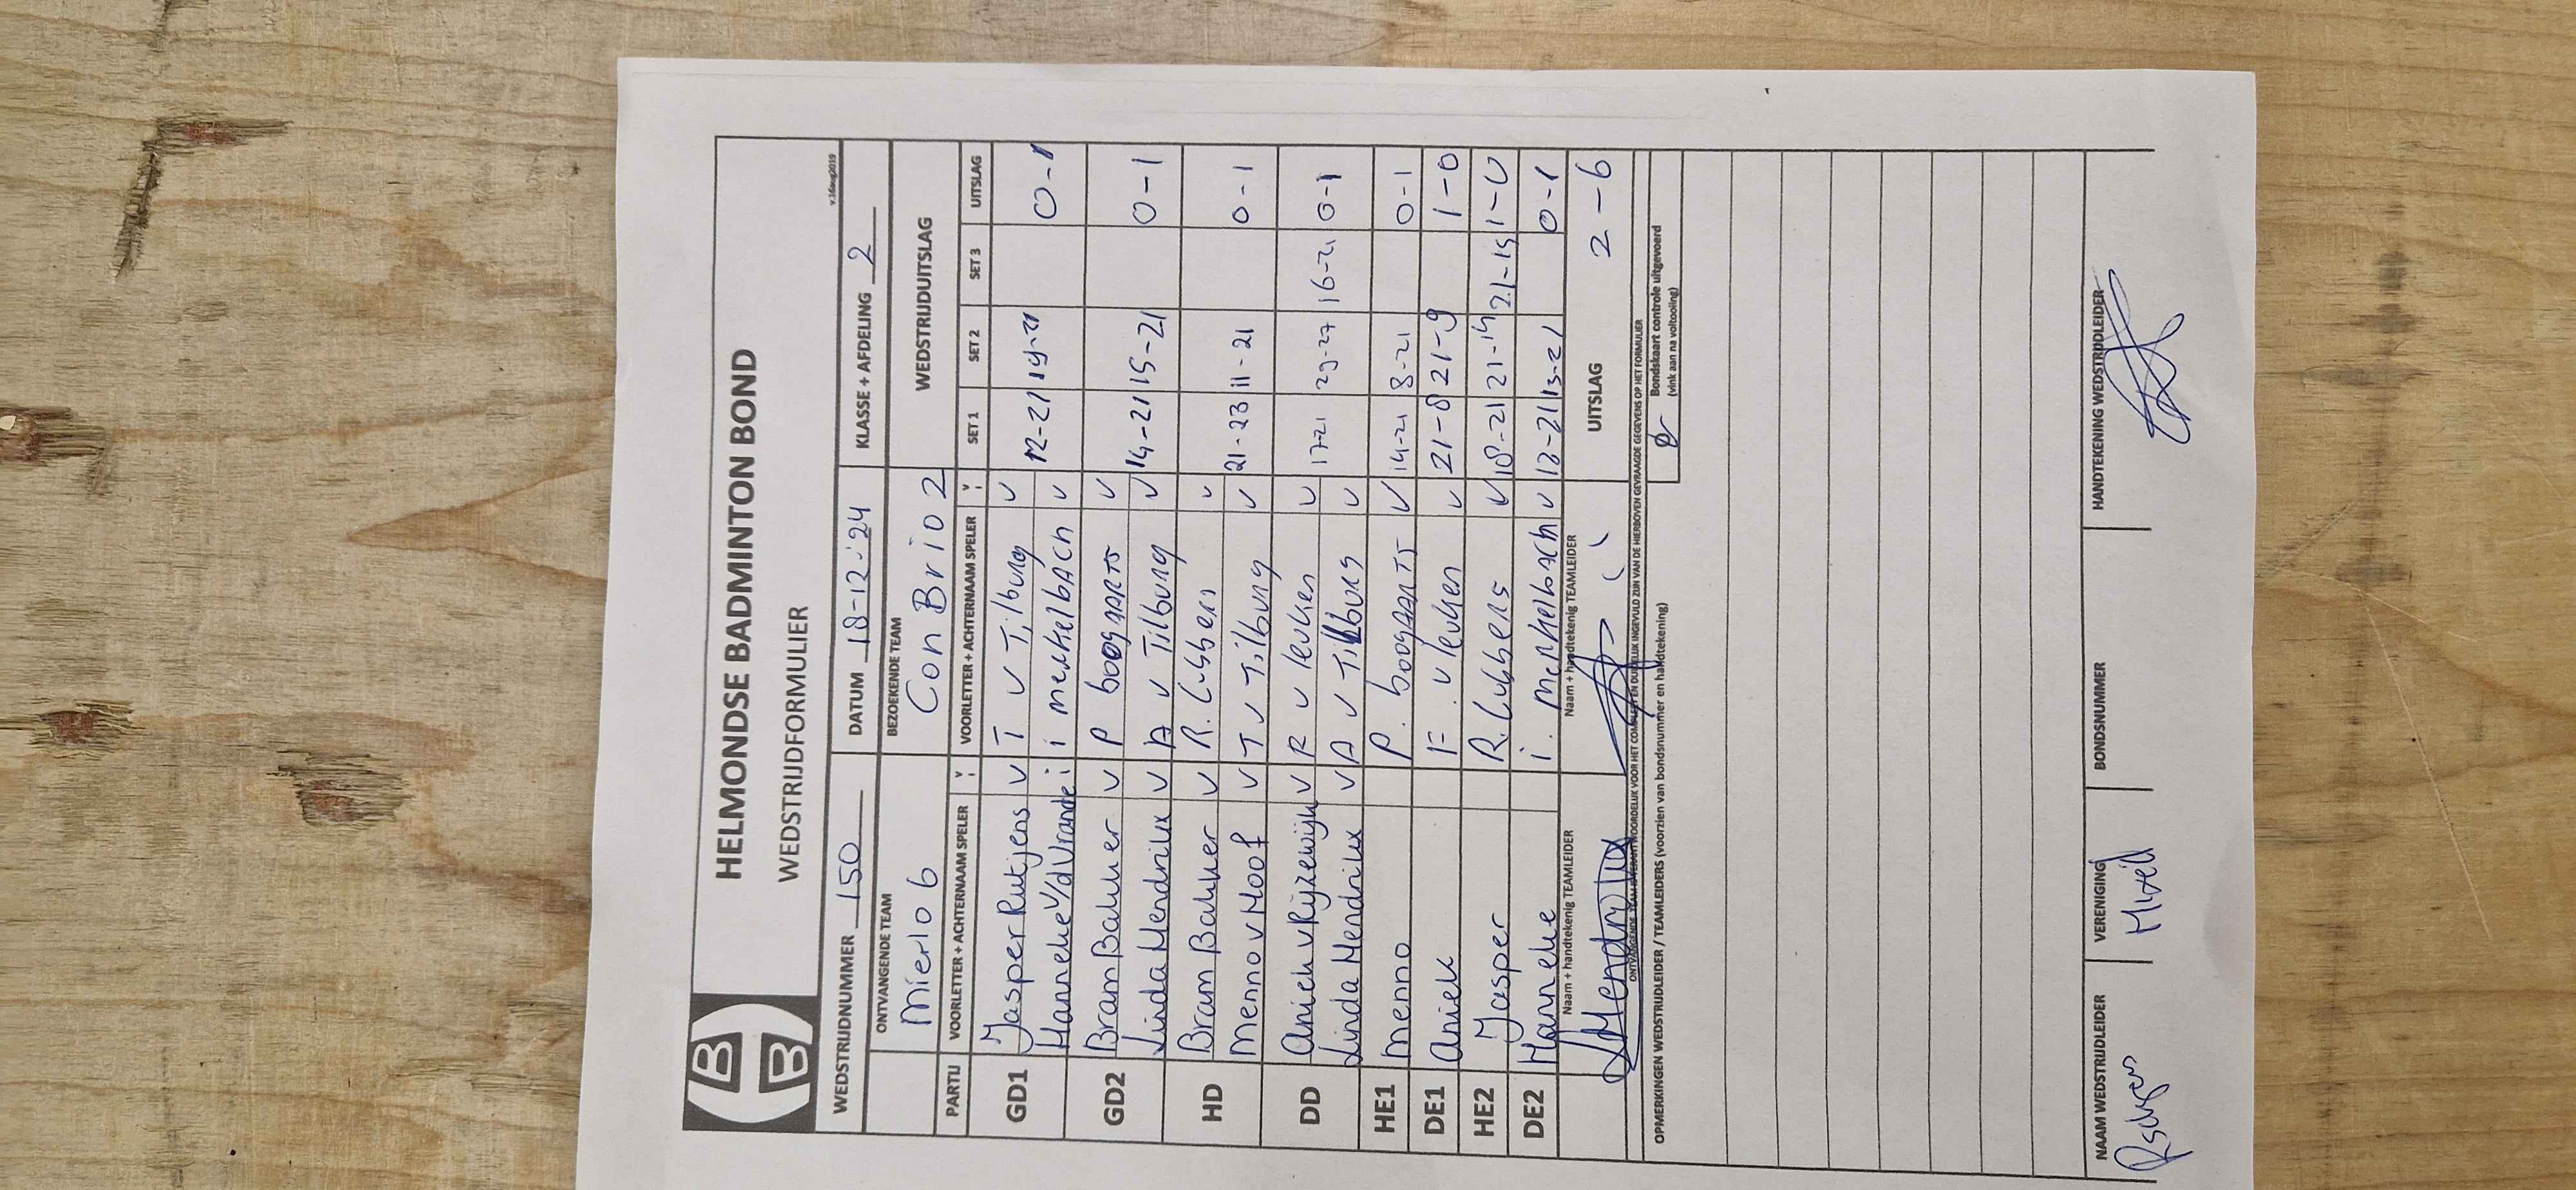 HELMONDSE BADMINTON BOND
WEDSTRIJDFORMULIER
v.16aug2019
WEDSTRIJDNUMMER 150 DATUM 18-12-'24 KLASSE + AFDELING 2
ONTVANGENDE TEAM BEZOEKENDE TEAM WEDSTRIJDUITSLAG
Mierlo 6 Con Brio 2
PARTIJ VOORLETTER + ACHTERNAAM SPELER V VOORLETTER + ACHTERNAAM SPELER V SET 1 SET 2 SET 3 UITSLAG
GD1 Jasper Rutjens V T v Tilburg V
Hanneke v/d Vrande i i merkelbach V 12-21 19-21 0-1
GD2 Bram Bakker V P bogaarts V
Linda Hendrikx V A v Tilburg V 14-21 15-21 0-1
HD Bram Bakker V R. Lubbers V
Menno v Hoof V T v Tilburg V 21-23 11-21 0-1
DD Aniek v Rijzewijk V F v leuken V
Linda Hendrikx V A v Tilburg V 17-21 16-21 0-1
HE1 Menno P. boogaarts V 14-21 8-21 0-1
DE1 Aniek F. v leuken V 21-8 21-9 1-0
HE2 Jasper R. Lubbers V 18-21 21-14 21-15 1-0
DE2 Hanneke i. merkelbach V 13-21 0-1
Naam + handtekenig TEAMLEIDER Naam + handtekenig TEAMLEIDER UITSLAG 2-6
LHendrikx
ONTVANGENDE TEAM IS VERANTWOORDELIJK VOOR HET COMPLEET EN DUIDELIJK INGEVULD ZIJN VAN DE HIERBOVEN GEVRAAGDE GEGEVENS OP HET FORMULIER
Bondskaart controle uitgevoerd
(vink aan na voltooiing)
OPMERKINGEN WEDSTRIJDLEIDER / TEAMLEIDERS (voorzien van bondsnummer en handtekening)
NAAM WEDSTRIJDLEIDER VERENIGING BONDSNUMMER HANDTEKENING WEDSTRIJDLEIDER